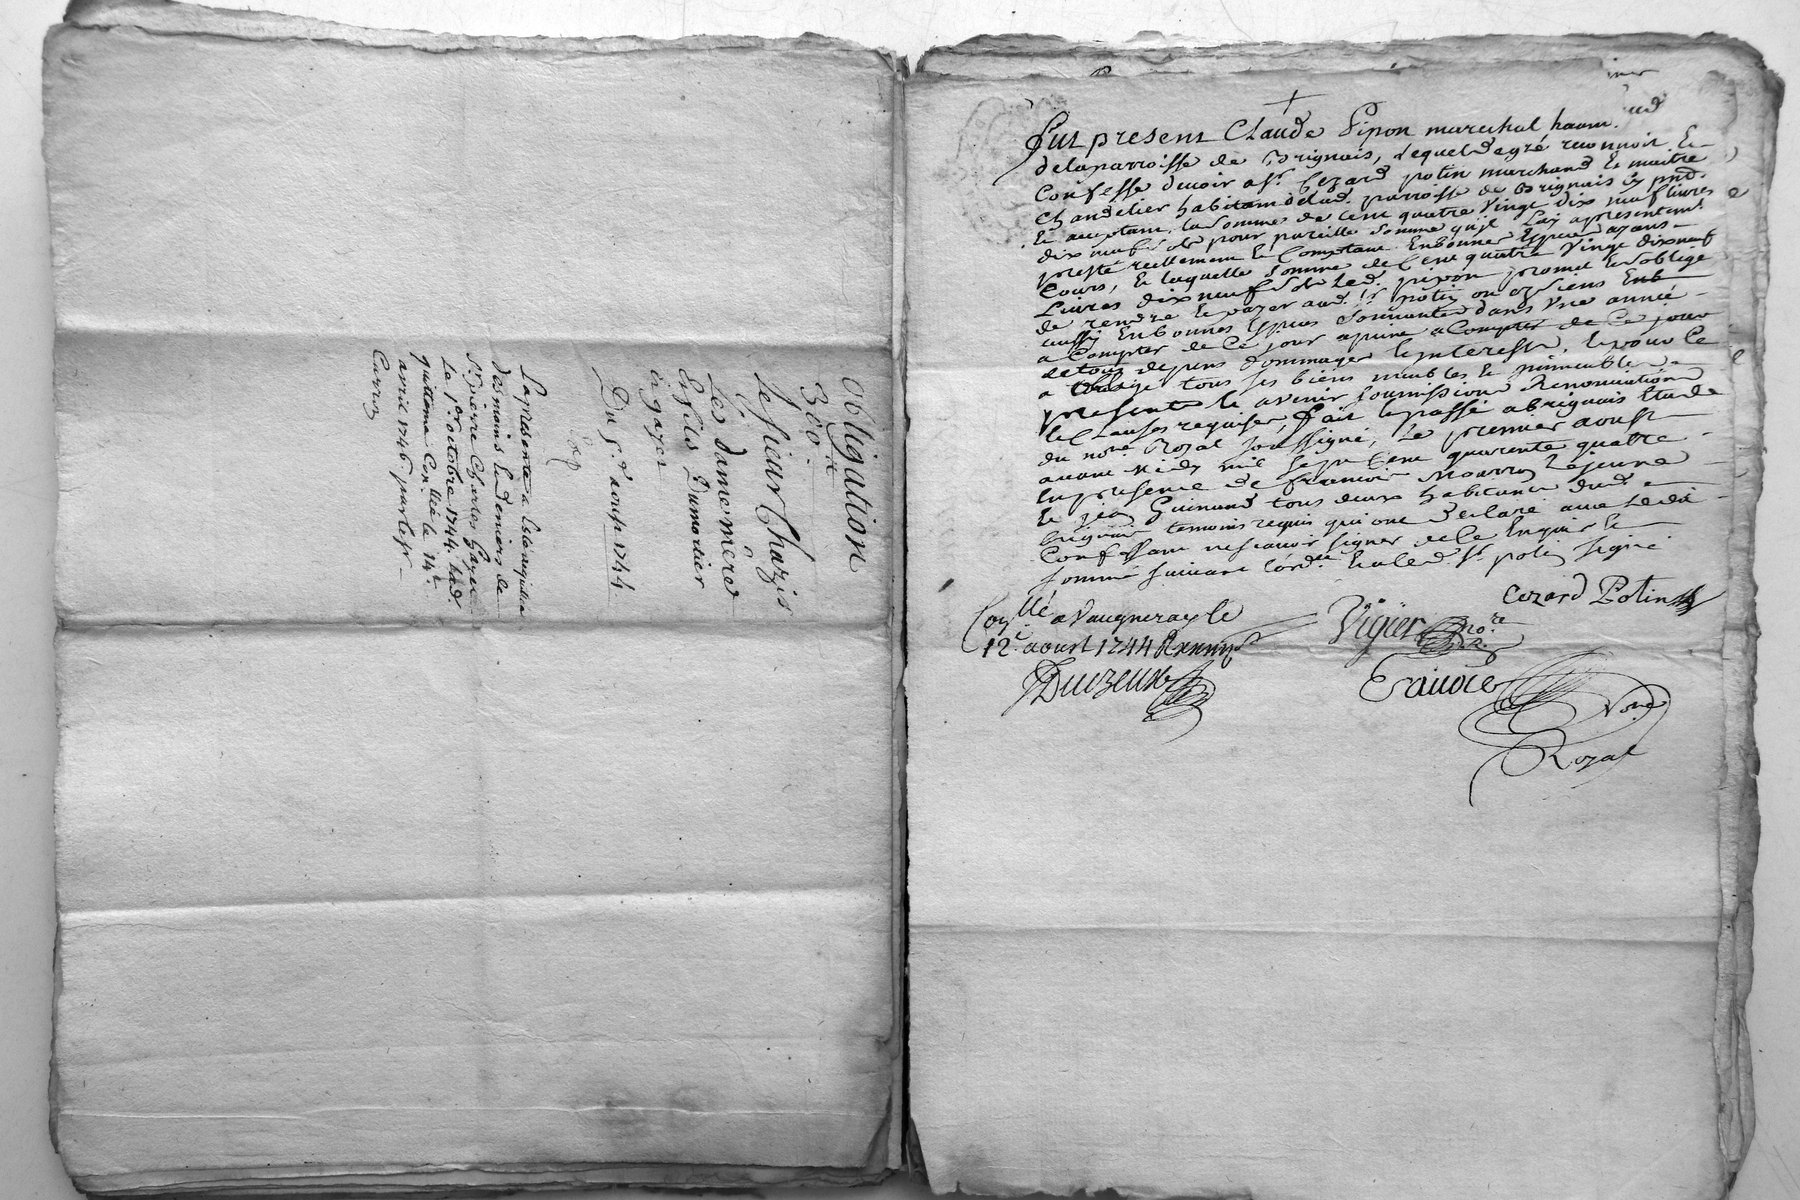 obligation
300.tt
Le sieur Chazis
Les dame mere
et fils Dumortier
à gayer
Du 5.e aoust 1744
Exp
La presente a Esté acquittée
des mains & deniers de
Sr. pierre Charles
Le 1er octobre 1744.
quittance Con.llée le 14e.
avril 1746. par le sr.
Carroz
fut present Claude Pipon marechal
de la parroisse de Brignais, Lequel de gré reconnoit Et
Confesse devoir a sr. Cezard potin marchand Et maitre
Chandelier habitant de lad. parroisse de Brignais icy pnt.
Et acceptant, la somme de Cent quatre vingt dix neuf livres
dix neuf sols pour pareille somme qu'il luy a presentement
presté reellement Et Comptant En bonnes Espèces ayans
Cours, Et laquelle somme de Cent quatre vingt dix neuf
Livres dix neuf sols Led. pipon promet Et s'oblige
de rendre Et payer aud. sr. potin ou és siens
aussy En bonnes Espèces sonnantes dans Une année
a Compter de Ce jour a peine
de tous depens dommages Et interests, Et pour Ce
a obligé tous ses biens meubles Et immeubles
presents Et avenir soumissions Renonciations
Et Clauses requises, fait Et passé a brignais Etude
du nore Royal soussigné, Le premier aoust
avant midy mil sept Cent quarente quatre
En presence de francois Mourron Lejeune
Et jean Guinand tous deux habitants dud.
brignais temoins requis qui ont declaré avec Ledit
Confessant ne scavoir signer de Ce Enquis Et
sommé suivant l'ord.ce Et a led. sr. potin signé
Cezard Potin
Con.llé a Vaugneray le
12.e aoust 1744 R
Vigier No.re R.
Duizeux
Nore
Royal